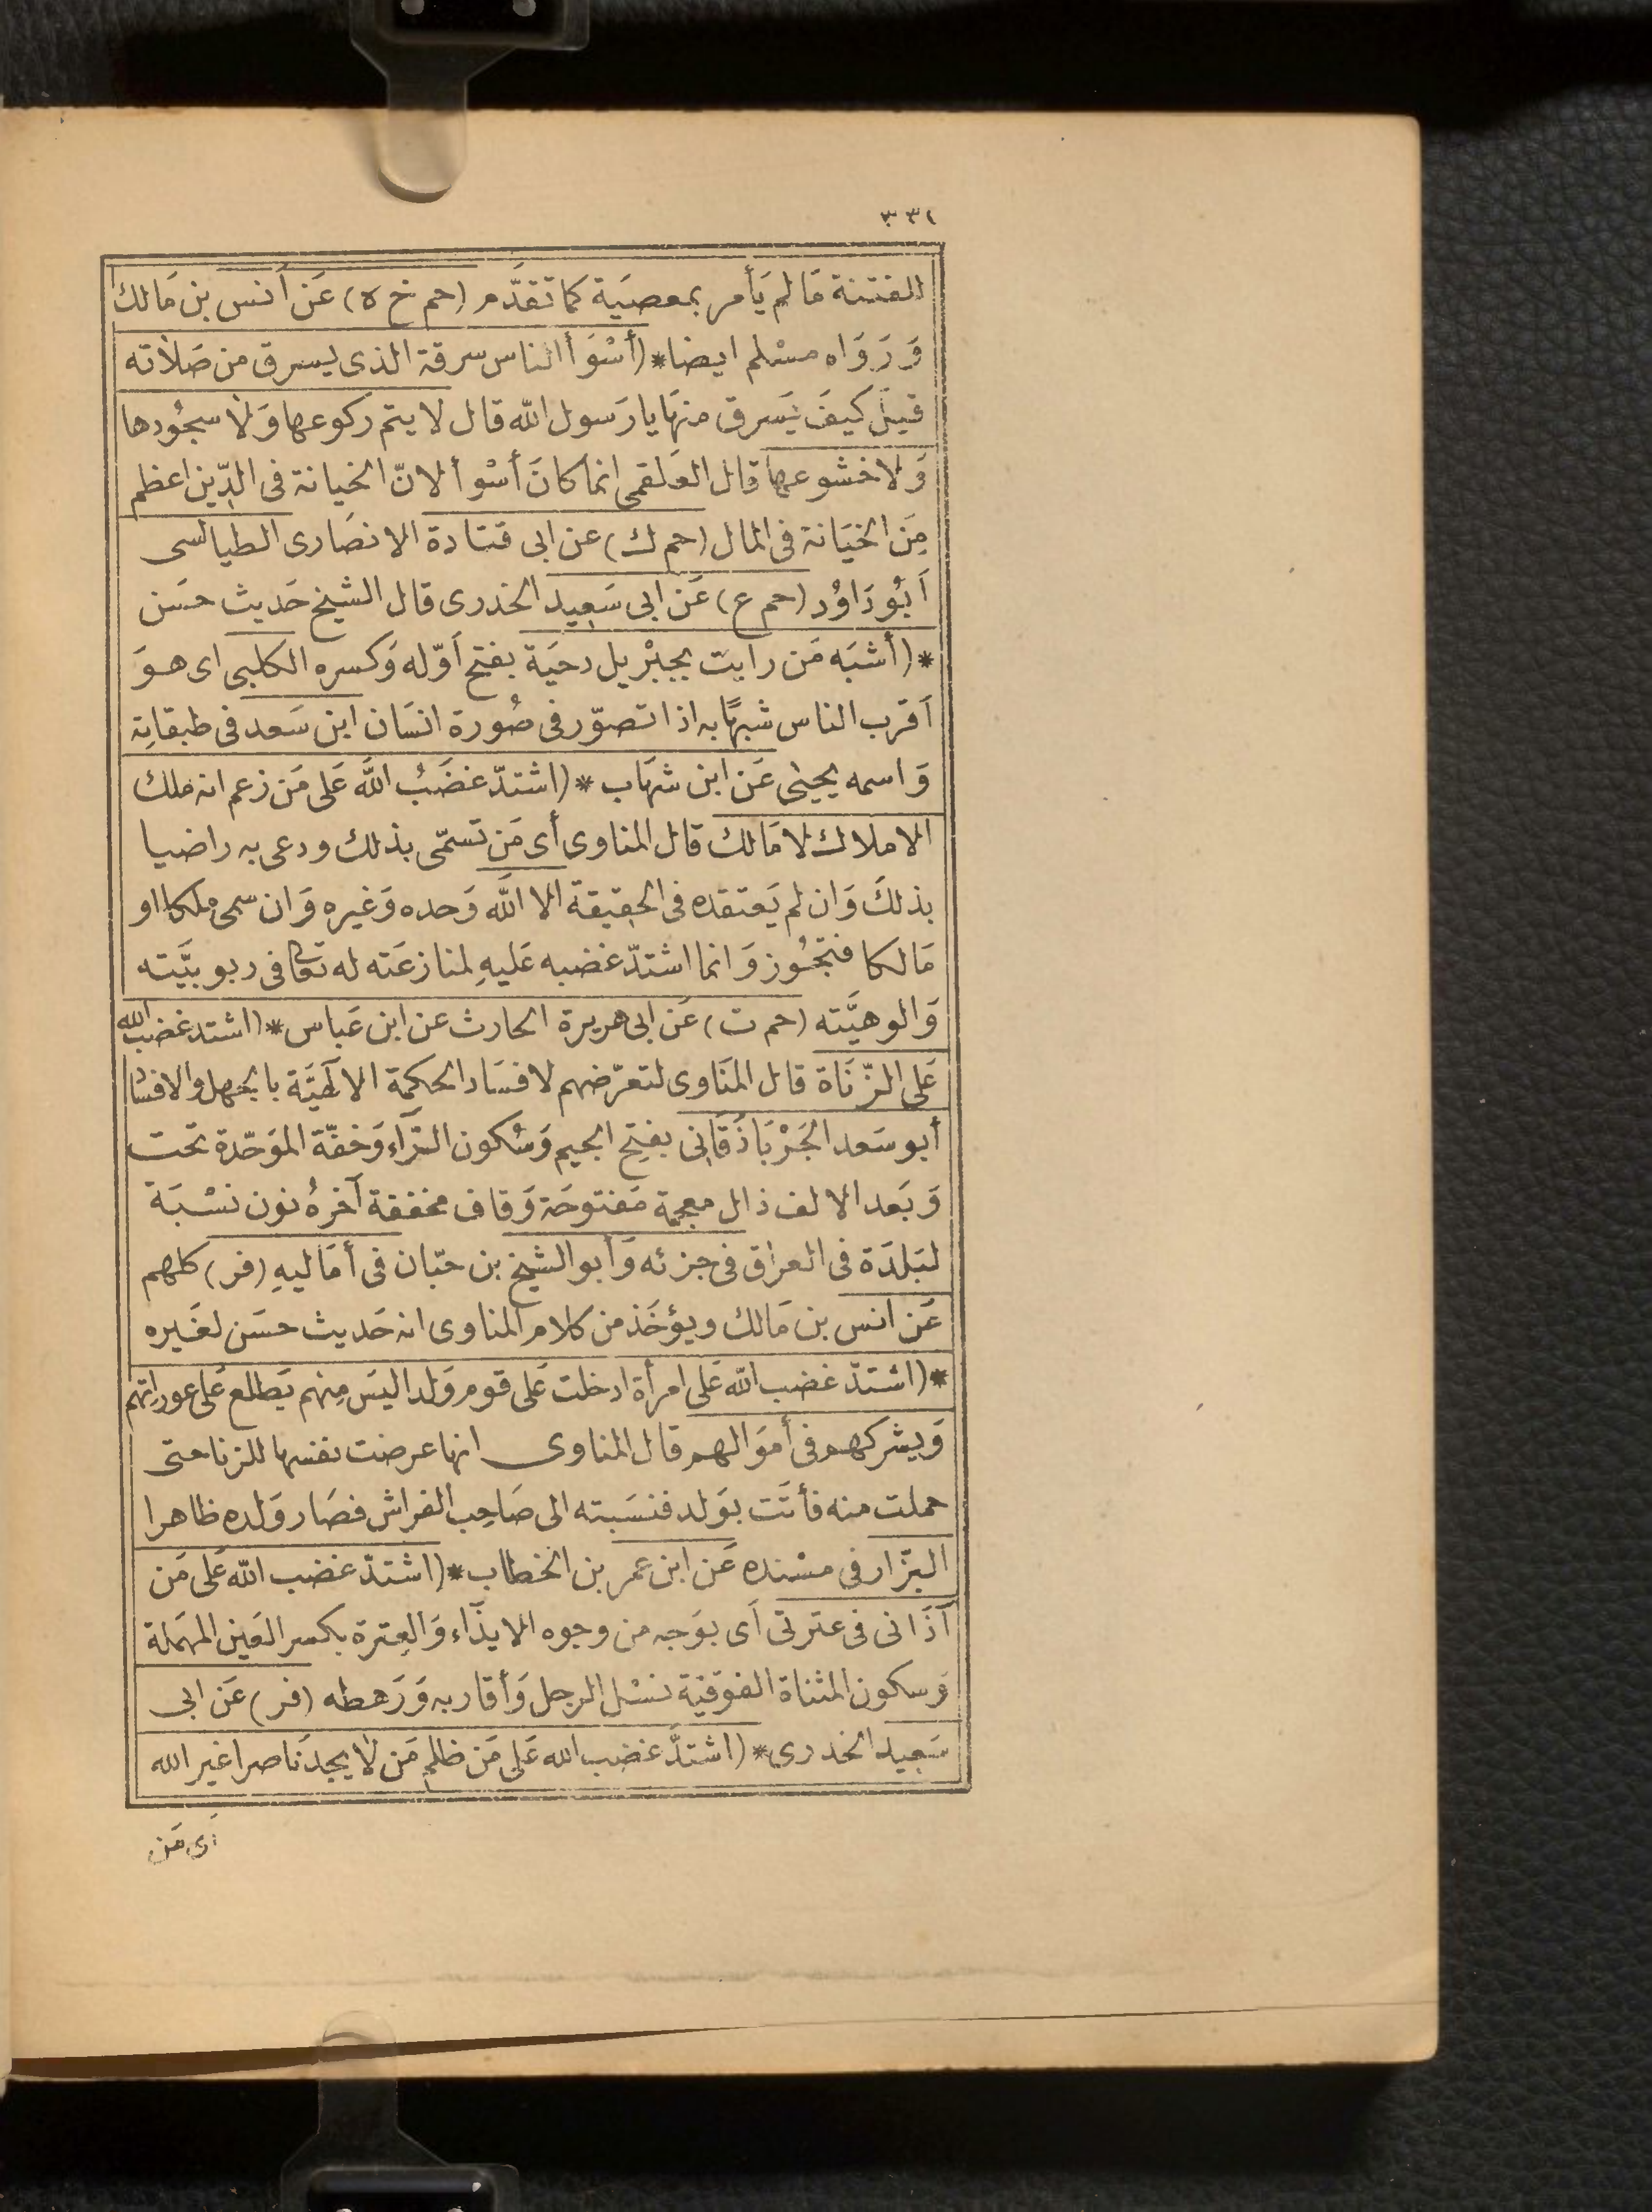 ٣٣٢
الفتنة مَا لم يَأمر بمعصيَة كما تقدَّم (حم خ ه) عَن أَنس بن مَالك
وَرَوَاه مسْلم ايضا* (أسْوَأ الناس سرقة الذى يسرق من صَلاته
قيل كيفَ يَسرق منهَا يا رَسول الله قال لا يتم ركوعها وَلا سجُودها
وَلا خشوعها قال العَلقمى انما كانَ أسْوأ لانّ الخيانة فى الدّين اعظم
مِنَ الخيَانة فى المال (حم ك) عن ابى قتادة الانصَارى الطيالسى
أبُو دَاوُد (حم ع) عَن ابى سَعِيد الخدرى قال الشيخ حَديث حسَن
* (أشبَه مَن رايت بجبْريل دحيَة بفتح أوّله وَكسره الكلبى اى هوَ
أقرب الناس شبهًا به اذا تصوّر فى صُورة انسَان ابن سَعد فى طبقاتِه
وَاسمه يحيٰى عَن ابن شهَاب * (اشتدّ غضَبُ اللَّه عَلى مَن زعم انه ملك
الاملاك لا مَالك قال المناوى أى مَن تسمّى بذلك ودعى به راضيا
بذلكَ وَان لم يَعتقده فى الحقِيقة الا اللَّه وَحده وَغيره وَان سمى ملكا او
مَالكا فتجَوُّز وَانما اشتدّ غضبه عَليهِ لمنازعَته له تعَالى فى ربوبيَّته
وَالوهيَّته (حم ت) عَن ابى هريرة الحارث عن ابن عَباس* (اشتد غضب الله
عَلى الزّنَاة قال المنَاوى لتعرّضهم لافسَاد الحكمة الالٓهيَّة بالجهل والافساد
أبو سَعد الجَرْبَاذَقَانِى بفتح الجيم وَسُكون الرّآء وَخفّة الموَحّدة تحت
وَبَعد الالف ذال معجمة مَفتوحَة وَقاف مخففة آخرهُ نون نسْبَة
لبَلدَة فى العراق فى جزئه وَأبو الشيخ بن حبّان فى أمَاليهِ (فر) كلهم
عَن انس بن مَالك ويؤخَذ من كلام المناوى انه حَديث حسَن لغَيره
* (اشتدّ غضب الله عَلى امرأة ادخلت عَلى قوم وَلدا ليسَ مِنهم يَطلع عَلى عورَاتهم
وَيشركهم فى أموَالهم قال المناوى انها عرضت نفسها للزنا حتى
حملت منه فأتَت بوَلد فنسَبته الى صَاحِب الفراش فصَار وَلده ظاهرا
البزّار فى مسْنده عَن ابن عمر بن الخطاب* (اشتدّ غضب الله عَلى مَن
آذَانى فى عترتى أى بوَجه من وجوه الايذَآء وَالعِترة بكسر العَين المهمَلة
وَسكون المثناة الفوَقيّة نسْل الرجل وَأقاربه وَرَهطه (فر) عَن ابى
سَعِيد الخدرى* (اشتدَّ غضب الله عَلى مَن ظلم مَن لا يجد نَاصرا غير الله
أى مَن